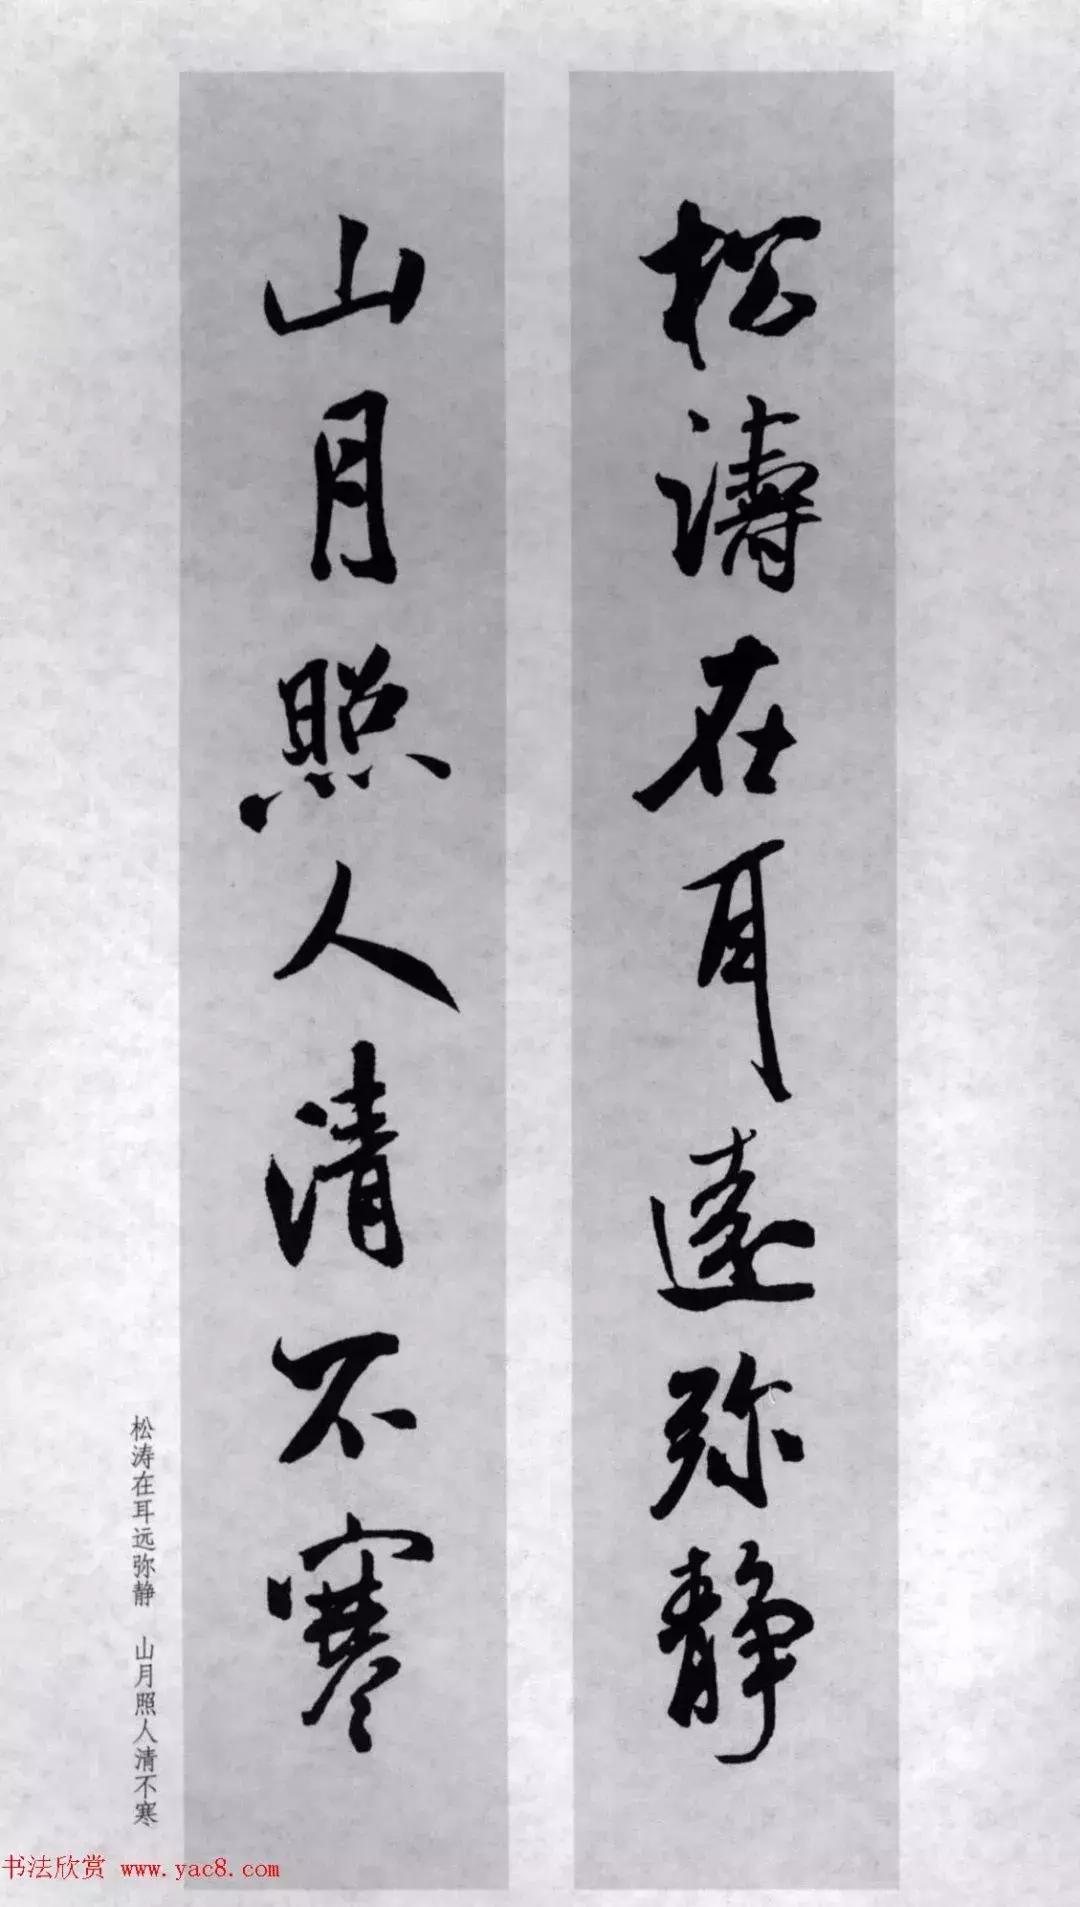 松濤在耳遠弥静
山月照人清不寒
松涛在耳远弥静 山月照人清不寒
书法欣赏 www.yac8.com